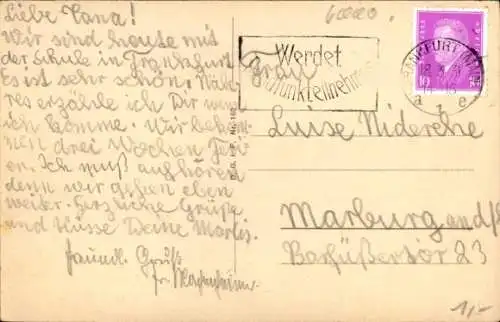 Liebe Tana!
Wir sind heute mit
der Schule in Frankfurt.
Es ist sehr schön. Näh-
res erzähle ich Dir wenn
ich komme. Wir bekom-
men drei Wochen
Ich muß aufhören
denn wir gehen eben
weiter. Herzliche Grüße
und Küsse Deine
Gruß
Werdet
Rundfunkteilnehmer
FRANKFURT (MAIN)
10
Frau
Luise
Marburg
Barfüßertor 23
1,-